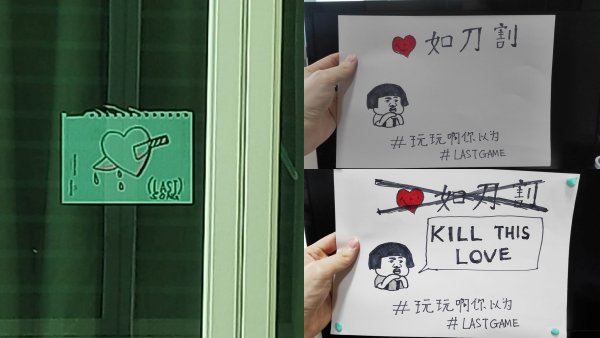 (LAST)
SONG
如刀割
#玩玩啊你以为
#LASTGAME
如刀割
KILL THIS
LOVE
#玩玩啊你以为
#LASTGAME